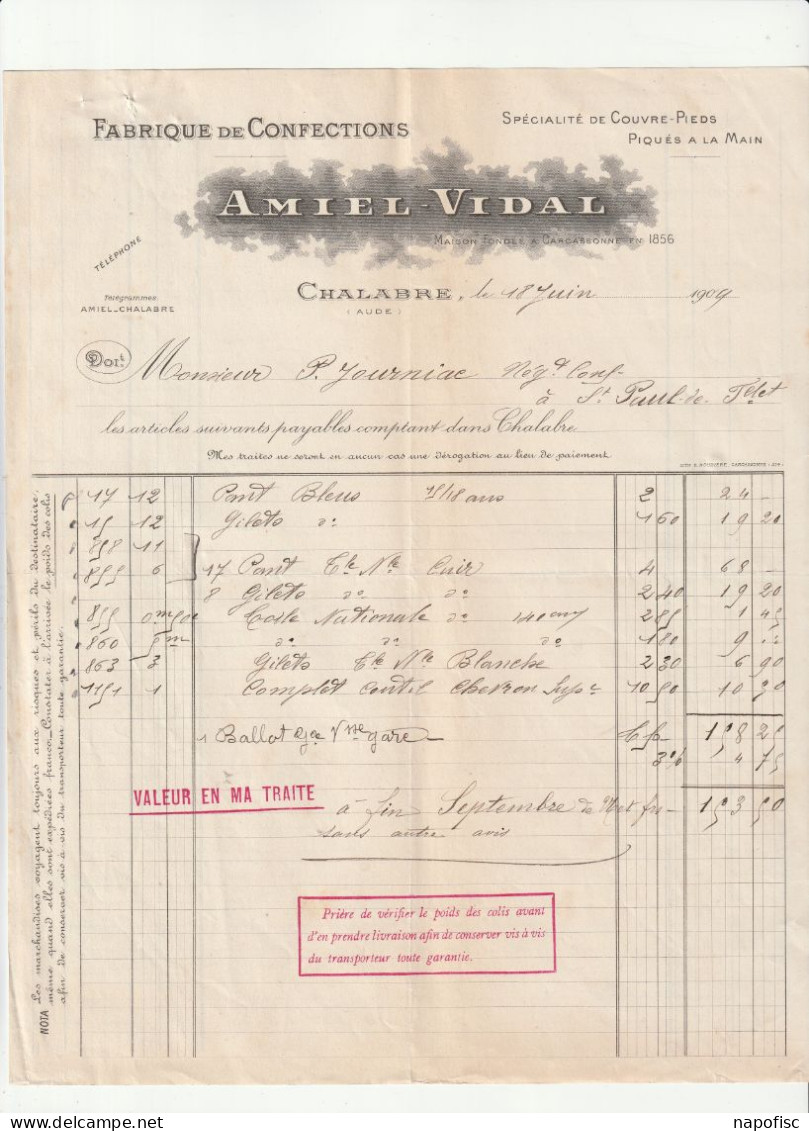 FABRIQUE DE CONFECTIONS
SPÉCIALITÉ DE COUVRE-PIEDS
PIQUÉS A LA MAIN
AMIEL-VIDAL
MAISON FONDÉE A CARCASSONNE EN 1856
TÉLÉPHONE
Télégrammes
AMIEL-CHALABRE
CHALABRE, le 18 Juin 1909
(AUDE)
Doit
Monsieur P. Journiac Négt Conf
à St Paul-de-
les articles suivants payables comptant dans Chalabre
Mes traites ne seront en aucun cas une dérogation au lieu de paiement
17 12 Pant Bleus 15/18 ans 2 24 —
15 12 Gilets do 1 60 19 20
858 11
855 6 17 Pant Cuir 4 68 —
8 Gilets do do 2 40 19 20
855 Nationale do 140 2 85 1 45
860 5m do do do 1 80 9
863 3 Gilets Blanche 2 30 6 90
1151 1 Complet Coutil Chevron Supre 10 50 10 50
1 Ballot gare 158 25
3% 4 75
VALEUR EN MA TRAITE
à fin Septembre 153 50
sans autre avis
Prière de vérifier le poids des colis avant
d'en prendre livraison afin de conserver vis à vis
du transporteur toute garantie.
NOTA Les marchandises voyagent toujours aux risques et périls du destinataire,
même quand elles sont expédiées franco_Constater à l'arrivée le poids des colis
afin de conserver vis à vis du transporteur toute garantie.
www.delcampe.net
napofisc